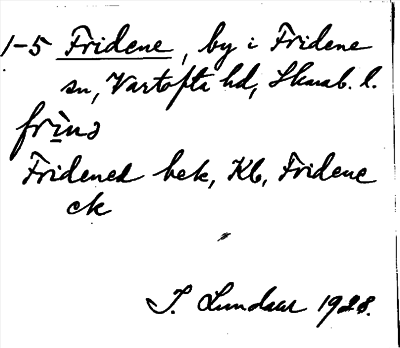 1-5 Fridene, by i Fridene
sn, Vartofta hd, Skarab. l.
frìnə
Fridened bek, Kb, Fridene
ek
I. Lundahl 1928.